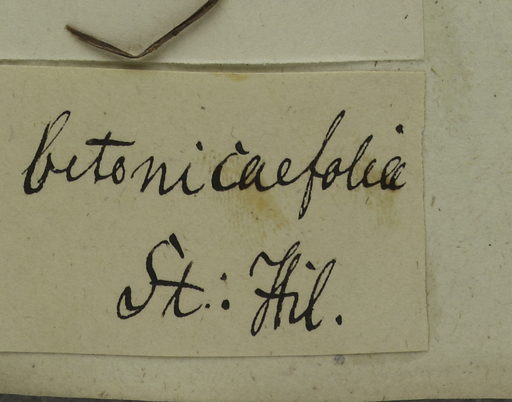 betonicaefolia
St: Hil.